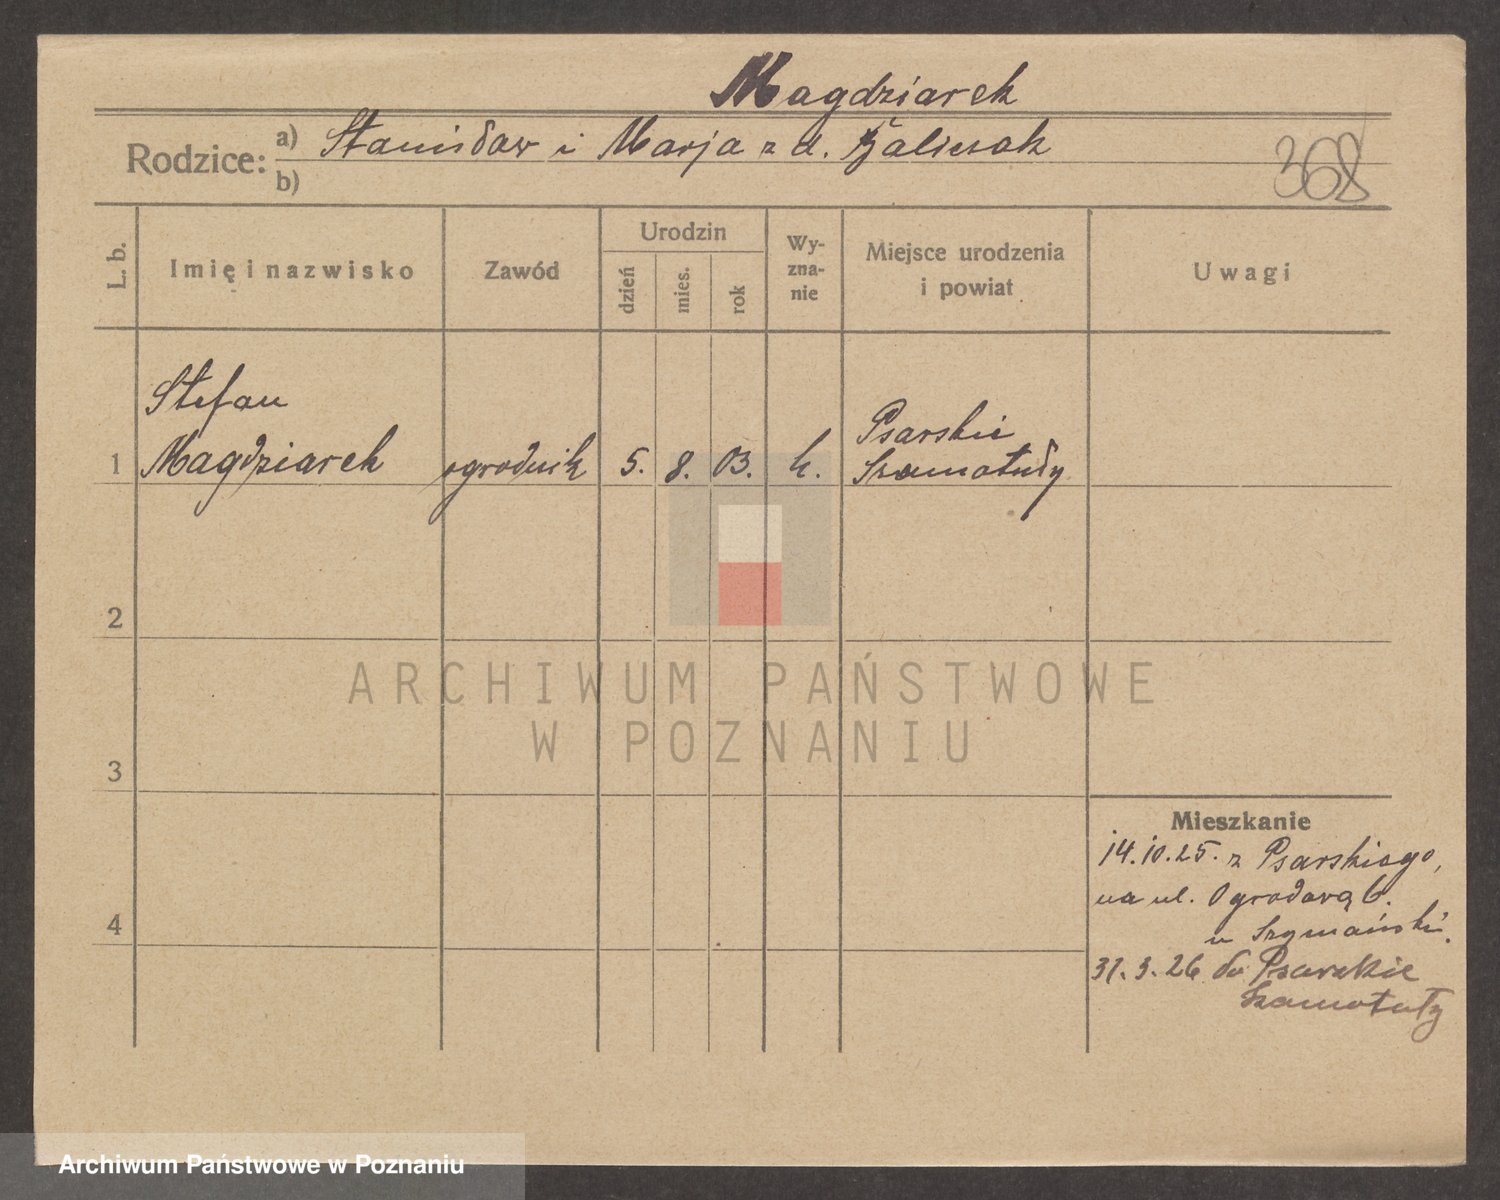 Magdziarek
Rodzice: a) Stanisław i Marja z d.
b)
368
L. b. Imię i nazwisko Zawód Urodzin dzień mies. rok Wyznanie Miejsce urodzenia i powiat Uwagi
Stefan
1 Magdziarek ogrodnik 5. 8. 03. k. Psarskie
Szamotuły
2
3
4
ARCHIWUM PAŃSTWOWE
W POZNANIU
Mieszkanie
14.10.25. z Psarskiego,
na ul. Ogrodową 6.
u Szymański.
31.3.26 do Psarskie
Szamotuły
Archiwum Państwowe w Poznaniu